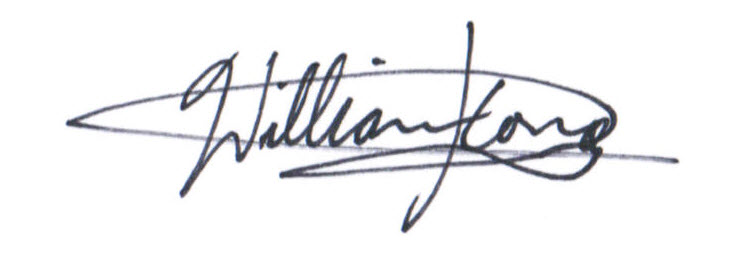 William Kong